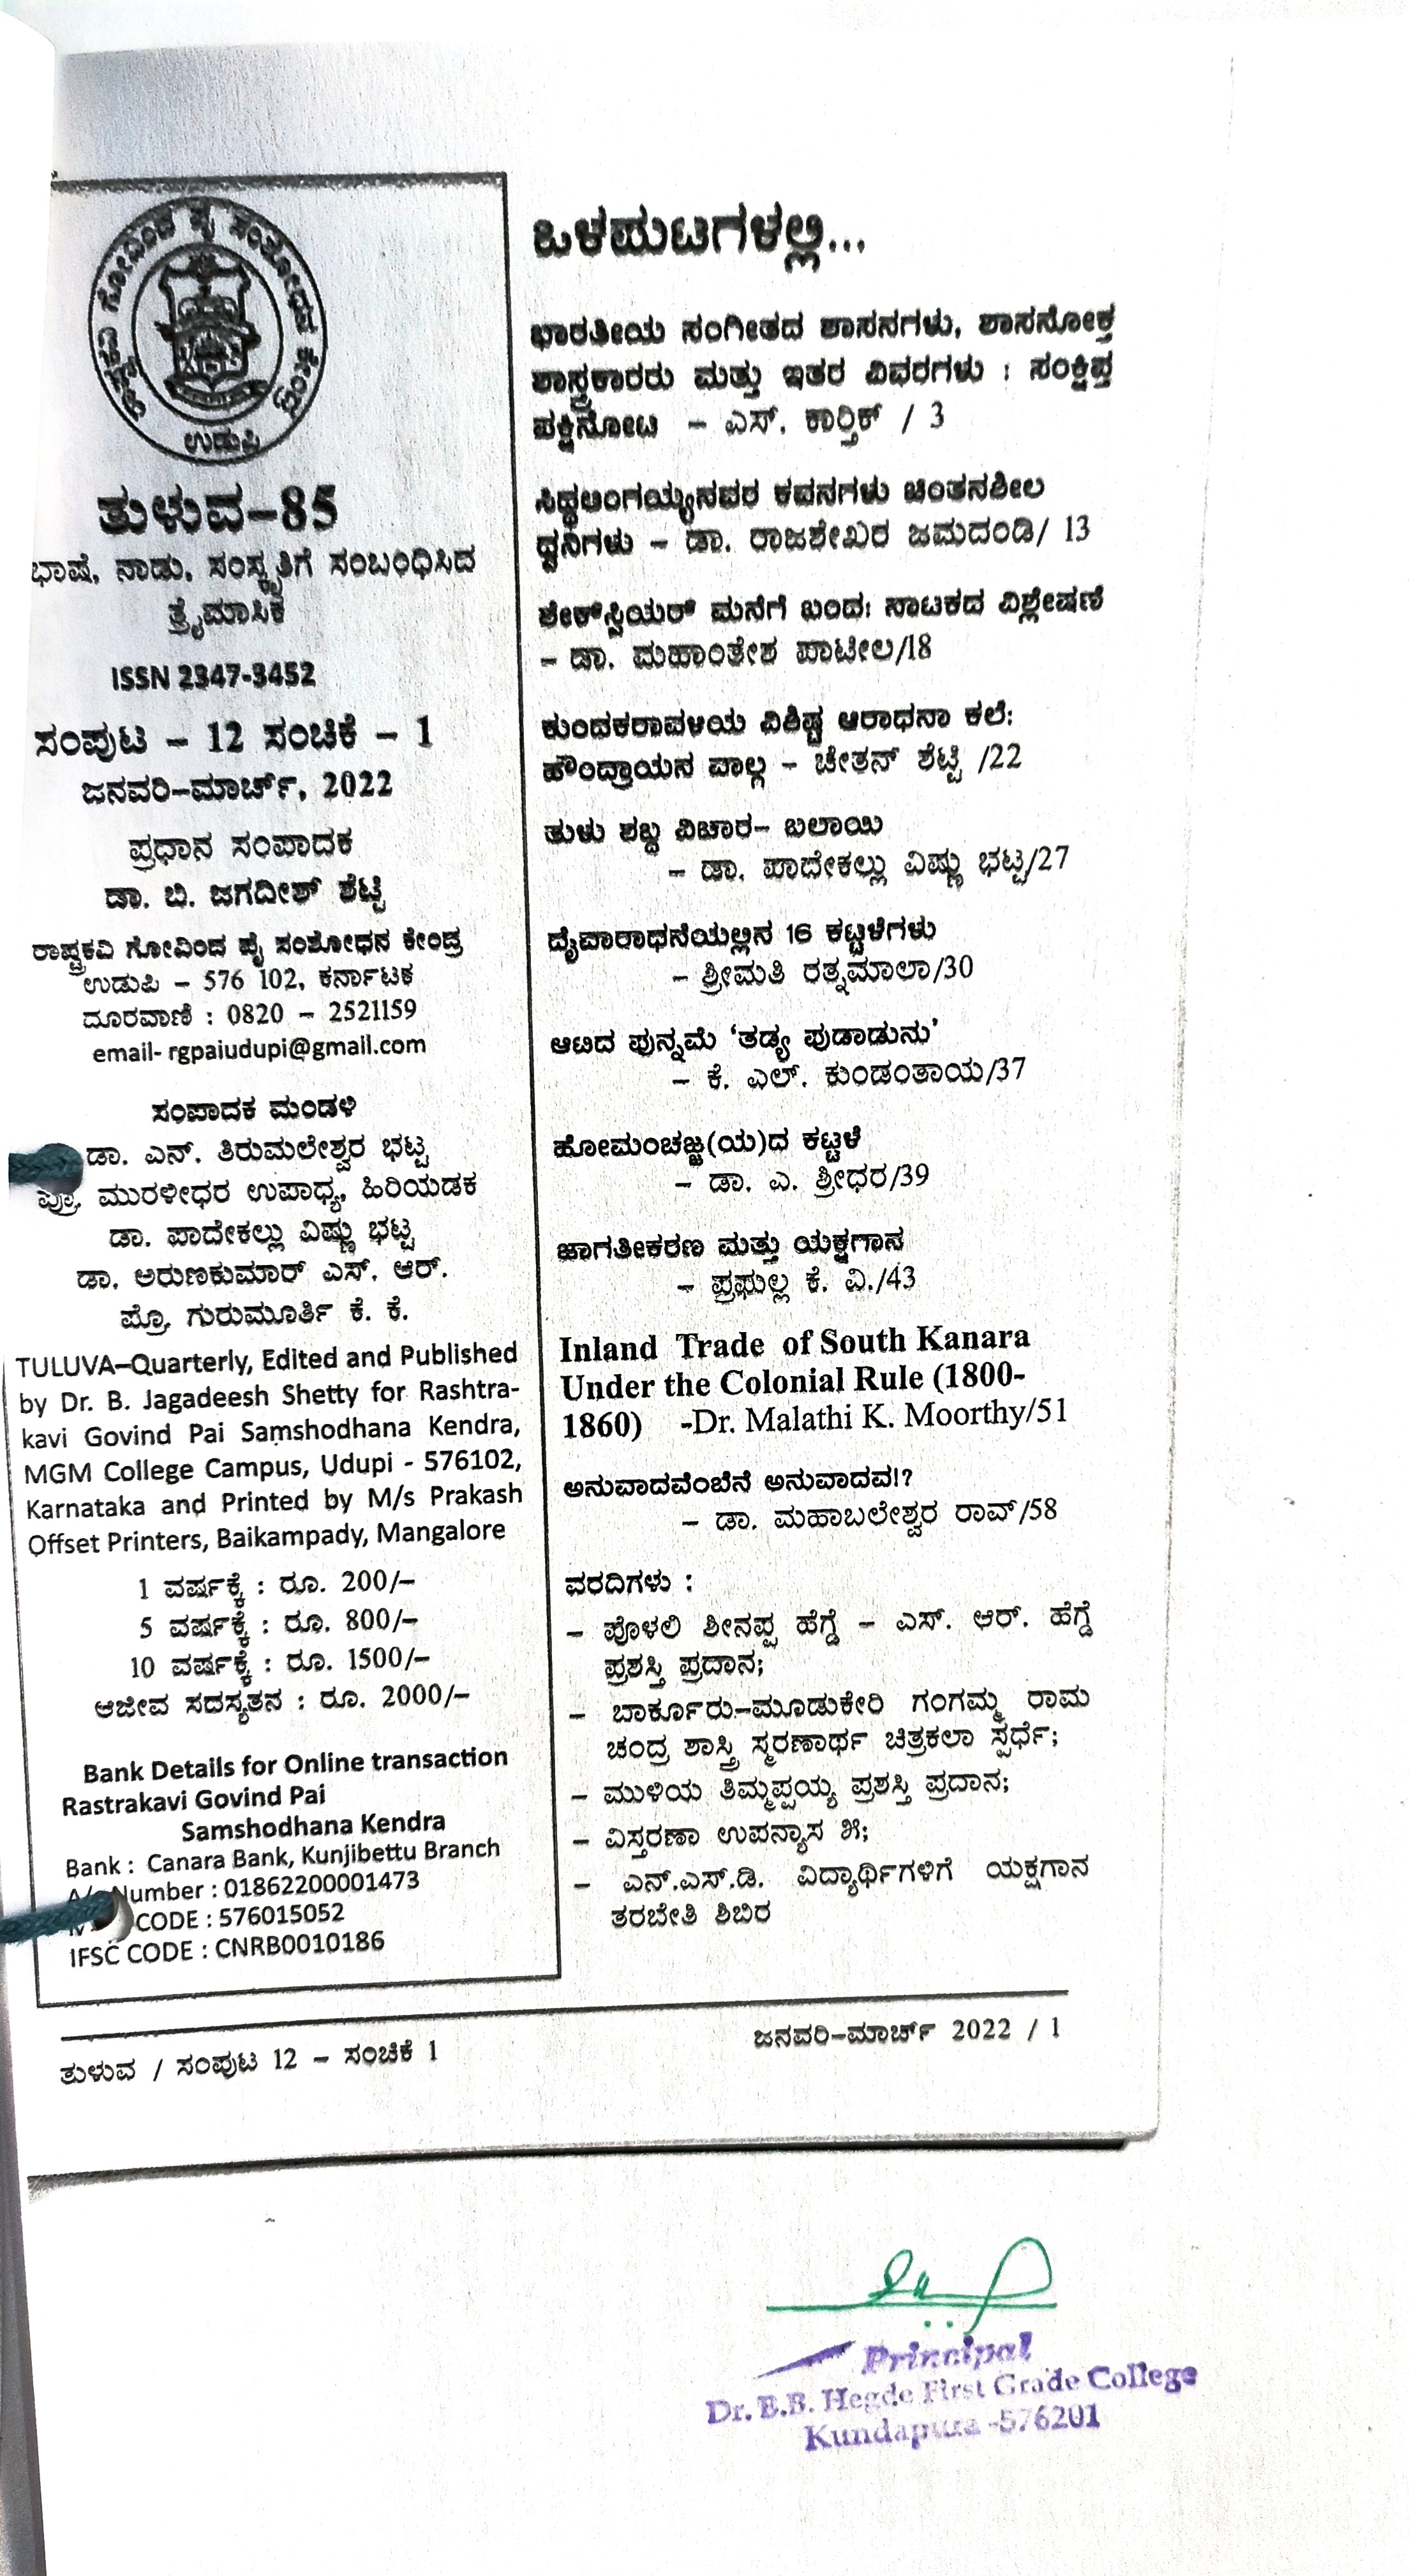 ರಾಷ್ಟ್ರಕವಿ ಗೋವಿಂದ ಪೈ ಸಂಶೋಧನ ಕೇಂದ್ರ
ಉಡುಪಿ
ತುಳುವ–85
ಭಾಷೆ, ನಾಡು, ಸಂಸ್ಕೃತಿಗೆ ಸಂಬಂಧಿಸಿದ
ತ್ರೈಮಾಸಿಕ
ISSN 2347-3452
ಸಂಪುಟ – 12 ಸಂಚಿಕೆ – 1
ಜನವರಿ–ಮಾರ್ಚ್, 2022
ಪ್ರಧಾನ ಸಂಪಾದಕ
ಡಾ. ಬಿ. ಜಗದೀಶ್ ಶೆಟ್ಟಿ
ರಾಷ್ಟ್ರಕವಿ ಗೋವಿಂದ ಪೈ ಸಂಶೋಧನ ಕೇಂದ್ರ
ಉಡುಪಿ – 576 102, ಕರ್ನಾಟಕ
ದೂರವಾಣಿ : 0820 – 2521159
email- rgpaiudupi@gmail.com
ಸಂಪಾದಕ ಮಂಡಳಿ
ಡಾ. ಎನ್. ತಿರುಮಲೇಶ್ವರ ಭಟ್ಟ
ಪ್ರೊ. ಮುರಳೀಧರ ಉಪಾಧ್ಯ, ಹಿರಿಯಡಕ
ಡಾ. ಪಾದೇಕಲ್ಲು ವಿಷ್ಣು ಭಟ್ಟ
ಡಾ. ಅರುಣಕುಮಾರ್ ಎಸ್. ಆರ್.
ಪ್ರೊ. ಗುರುಮೂರ್ತಿ ಕೆ. ಕೆ.
TULUVA–Quarterly, Edited and Published
by Dr. B. Jagadeesh Shetty for Rashtra-
kavi Govind Pai Samshodhana Kendra,
MGM College Campus, Udupi - 576102,
Karnataka and Printed by M/s Prakash
Offset Printers, Baikampady, Mangalore
1 ವರ್ಷಕ್ಕೆ : ರೂ. 200/–
5 ವರ್ಷಕ್ಕೆ : ರೂ. 800/–
10 ವರ್ಷಕ್ಕೆ : ರೂ. 1500/–
ಆಜೀವ ಸದಸ್ಯತನ : ರೂ. 2000/–
Bank Details for Online transaction
Rastrakavi Govind Pai
Samshodhana Kendra
Bank : Canara Bank, Kunjibettu Branch
Number : 01862200001473
CODE : 576015052
IFSC CODE : CNRB0010186
ಒಳಪುಟಗಳಲ್ಲಿ...
ಭಾರತೀಯ ಸಂಗೀತದ ಶಾಸನಗಳು, ಶಾಸನೋಕ್ತ
ಶಾಸ್ತ್ರಕಾರರು ಮತ್ತು ಇತರ ವಿವರಗಳು : ಸಂಕ್ಷಿಪ್ತ
ಪಕ್ಷಿನೋಟ – ಎಸ್. ಕಾರ‍್ತಿಕ್ / 3
ಸಿದ್ಧಲಿಂಗಯ್ಯನವರ ಕವನಗಳು ಚಿಂತನಶೀಲ
ಧ್ವನಿಗಳು – ಡಾ. ರಾಜಶೇಖರ ಜಮದಂಡಿ/ 13
ಶೇಕ್‌ಸ್ಪಿಯರ್ ಮನೆಗೆ ಬಂದ: ನಾಟಕದ ವಿಶ್ಲೇಷಣೆ
– ಡಾ. ಮಹಾಂತೇಶ ಪಾಟೀಲ/18
ಕುಂದಕರಾವಳಿಯ ವಿಶಿಷ್ಟ ಆರಾಧನಾ ಕಲೆ:
ಹೌಂದ್ರಾಯನ ವಾಲ್ಗ – ಚೇತನ್ ಶೆಟ್ಟಿ /22
ತುಳು ಶಬ್ದ ವಿಚಾರ– ಬಲಾಯಿ
– ಡಾ. ಪಾದೇಕಲ್ಲು ವಿಷ್ಣು ಭಟ್ಟ/27
ದೈವಾರಾಧನೆಯಲ್ಲಿನ 16 ಕಟ್ಟಳೆಗಳು
– ಶ್ರೀಮತಿ ರತ್ನಮಾಲಾ/30
ಆಟಿದ ಪುನ್ನಮೆ ‘ತಡ್ಯ ಪುಡಾಡುನು’
– ಕೆ. ಎಲ್. ಕುಂಡಂತಾಯ/37
ಹೋಮಂಚಜ್ಜ(ಯ)ದ ಕಟ್ಟಳೆ
– ಡಾ. ಎ. ಶ್ರೀಧರ/39
ಜಾಗತೀಕರಣ ಮತ್ತು ಯಕ್ಷಗಾನ
– ಪ್ರಫುಲ್ಲ ಕೆ. ವಿ./43
Inland Trade of South Kanara
Under the Colonial Rule (1800-
1860) -Dr. Malathi K. Moorthy/51
ಅನುವಾದವೆಂಬಿನೆ ಅನುವಾದವ!?
– ಡಾ. ಮಹಾಬಲೇಶ್ವರ ರಾವ್/58
ವರದಿಗಳು :
– ಪೊಳಲಿ ಶೀನಪ್ಪ ಹೆಗ್ಡೆ – ಎಸ್. ಆರ್. ಹೆಗ್ಡೆ
ಪ್ರಶಸ್ತಿ ಪ್ರದಾನ;
– ಬಾರ್ಕೂರು–ಮೂಡುಕೇರಿ ಗಂಗಮ್ಮ ರಾಮ
ಚಂದ್ರ ಶಾಸ್ತ್ರಿ ಸ್ಮರಣಾರ್ಥ ಚಿತ್ರಕಲಾ ಸ್ಪರ್ಧೆ;
– ಮುಳಿಯ ತಿಮ್ಮಪ್ಪಯ್ಯ ಪ್ರಶಸ್ತಿ ಪ್ರದಾನ;
– ವಿಸ್ತರಣಾ ಉಪನ್ಯಾಸ ೫;
– ಎನ್.ಎಸ್.ಡಿ. ವಿದ್ಯಾರ್ಥಿಗಳಿಗೆ ಯಕ್ಷಗಾನ
ತರಬೇತಿ ಶಿಬಿರ
ತುಳುವ / ಸಂಪುಟ 12 – ಸಂಚಿಕೆ 1
ಜನವರಿ–ಮಾರ್ಚ್ 2022 / 1
Principal
Dr. B.B. Hegde First Grade College
Kundapura -576201